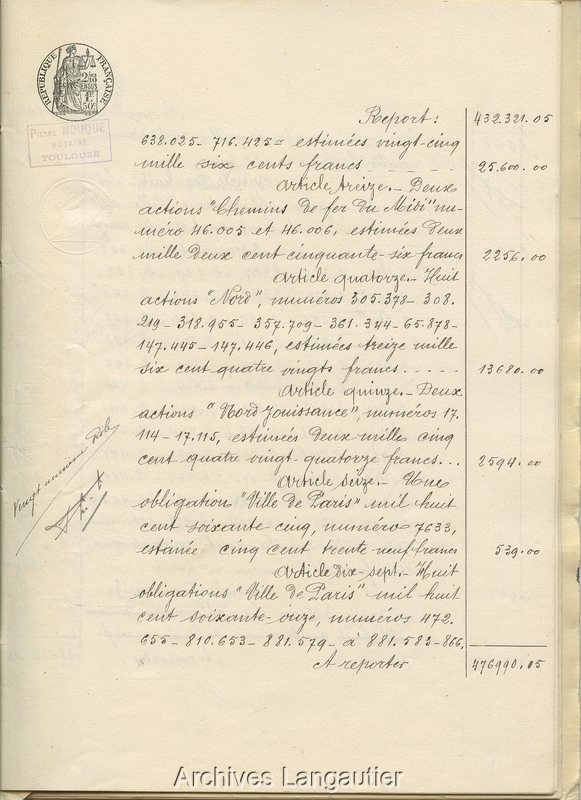 RÉPUBLIQUE FRANÇAISE
PIERRE
NOTAIRE
TOULOUSE
Report: 432.321.05
638.025 - 716.425 = estimées vingt-cinq
mille six cents francs 25.600.00
Article treize. - Deux
actions "Chemins de fer du Midi" nu-
méro 46.005 et 46.006, estimées deux
mille deux cent cinquante-six francs 2256.00
Article quatorze. - Huit
actions "Nord", numéros 305.378 - 308.
219 - 318.955 - 357.709 - 361.344 - 65.878 -
147.445 - 147.446, estimées treize mille
six cent quatre vingts francs . - - - - 13680.00
Article quinze. - Deux
actions "Nord Jouissance", numéros 17.
114 - 17.115, estimées deux mille cinq
cent quatre vingt-quatorze francs... 2594.00
Article seize. - Une
obligation "Ville de Paris" mil huit
cent soixante-cinq, numéros 7633,
estimée cinq cent trente neuf francs 539.00
Article dix-sept. - Huit
obligations "Ville de Paris" mil huit
cent soixante-onze, numéros 472.
655 - 810.653 - 881.579 - à 881.583 - 866.
A reporter 476990.05
Archives Langautier